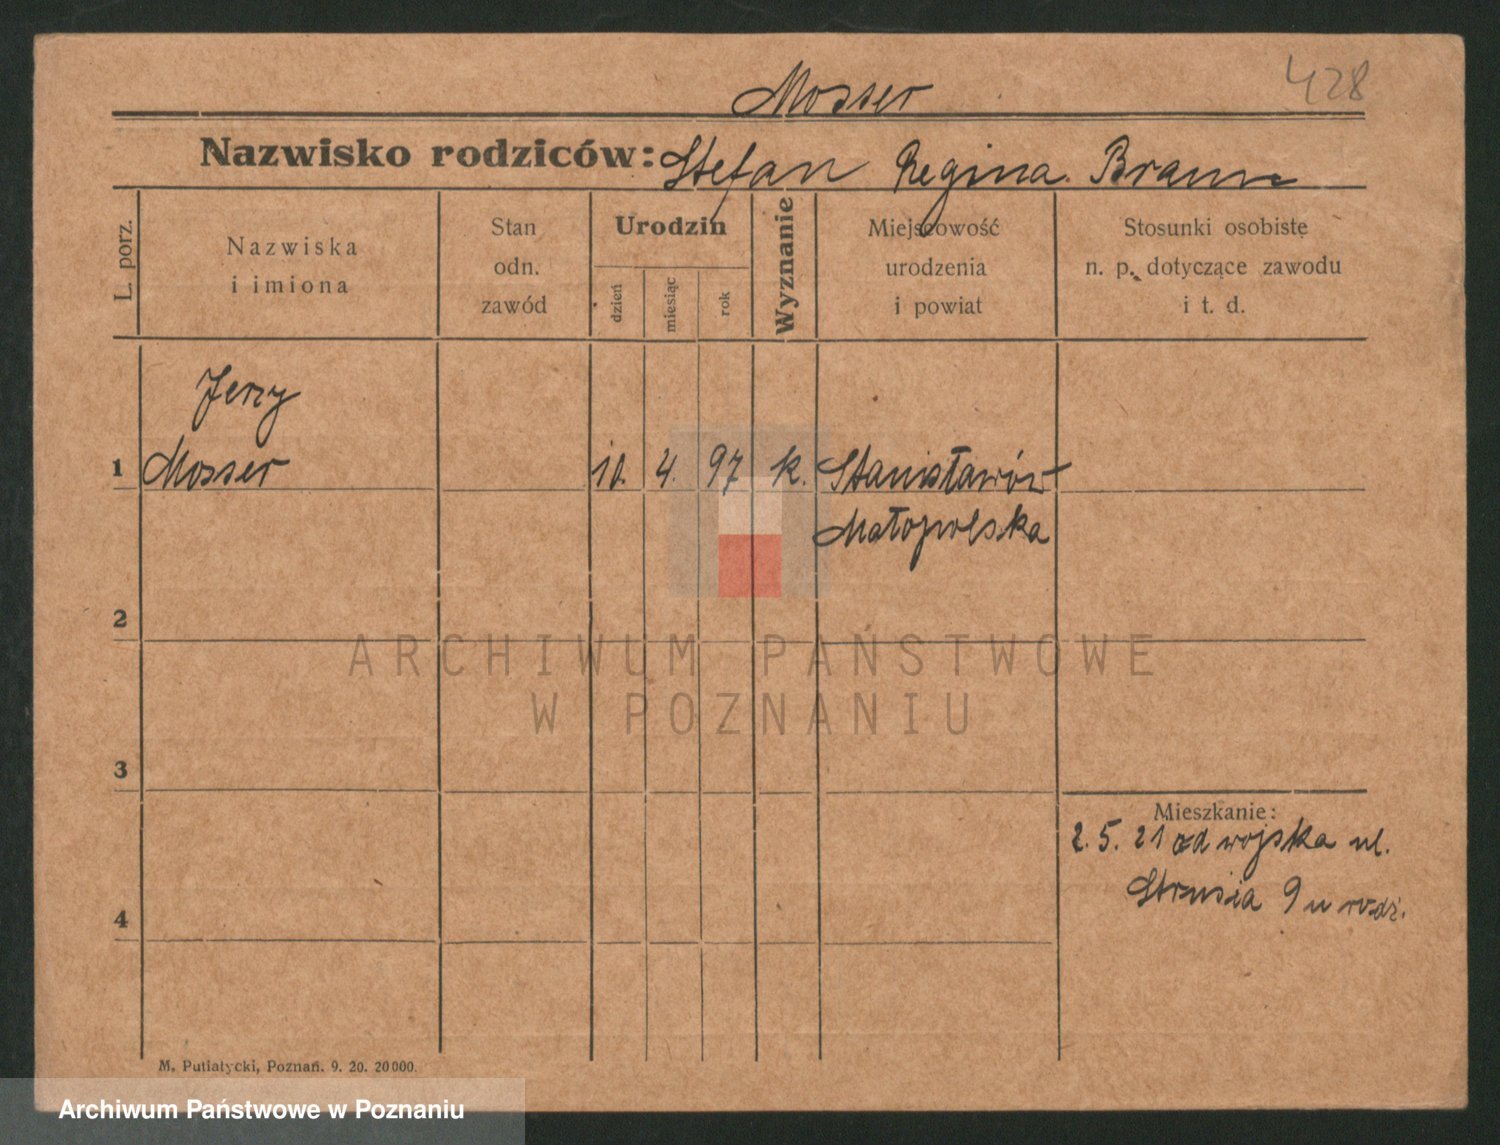 428
Mosser
Nazwisko rodziców: Stefan Regina Braun
L. porz.
Nazwiska
i imiona
Stan
odn.
zawód
Urodzin
dzień
miesiąc
rok
Wyznanie
Miejscowość
urodzenia
i powiat
Stosunki osobiste
n. p. dotyczące zawodu
i t. d.
Jerzy
1 Mosser 10. 4. 97 k. Stanisławów
Małopolska
2
ARCHIWUM PAŃSTWOWE
W POZNANIU
3
Mieszkanie:
2. 5. 21 od wojska ul.
Strusia 9 u rodz.
4
M. Putiatycki, Poznań. 9. 20. 20000.
Archiwum Państwowe w Poznaniu